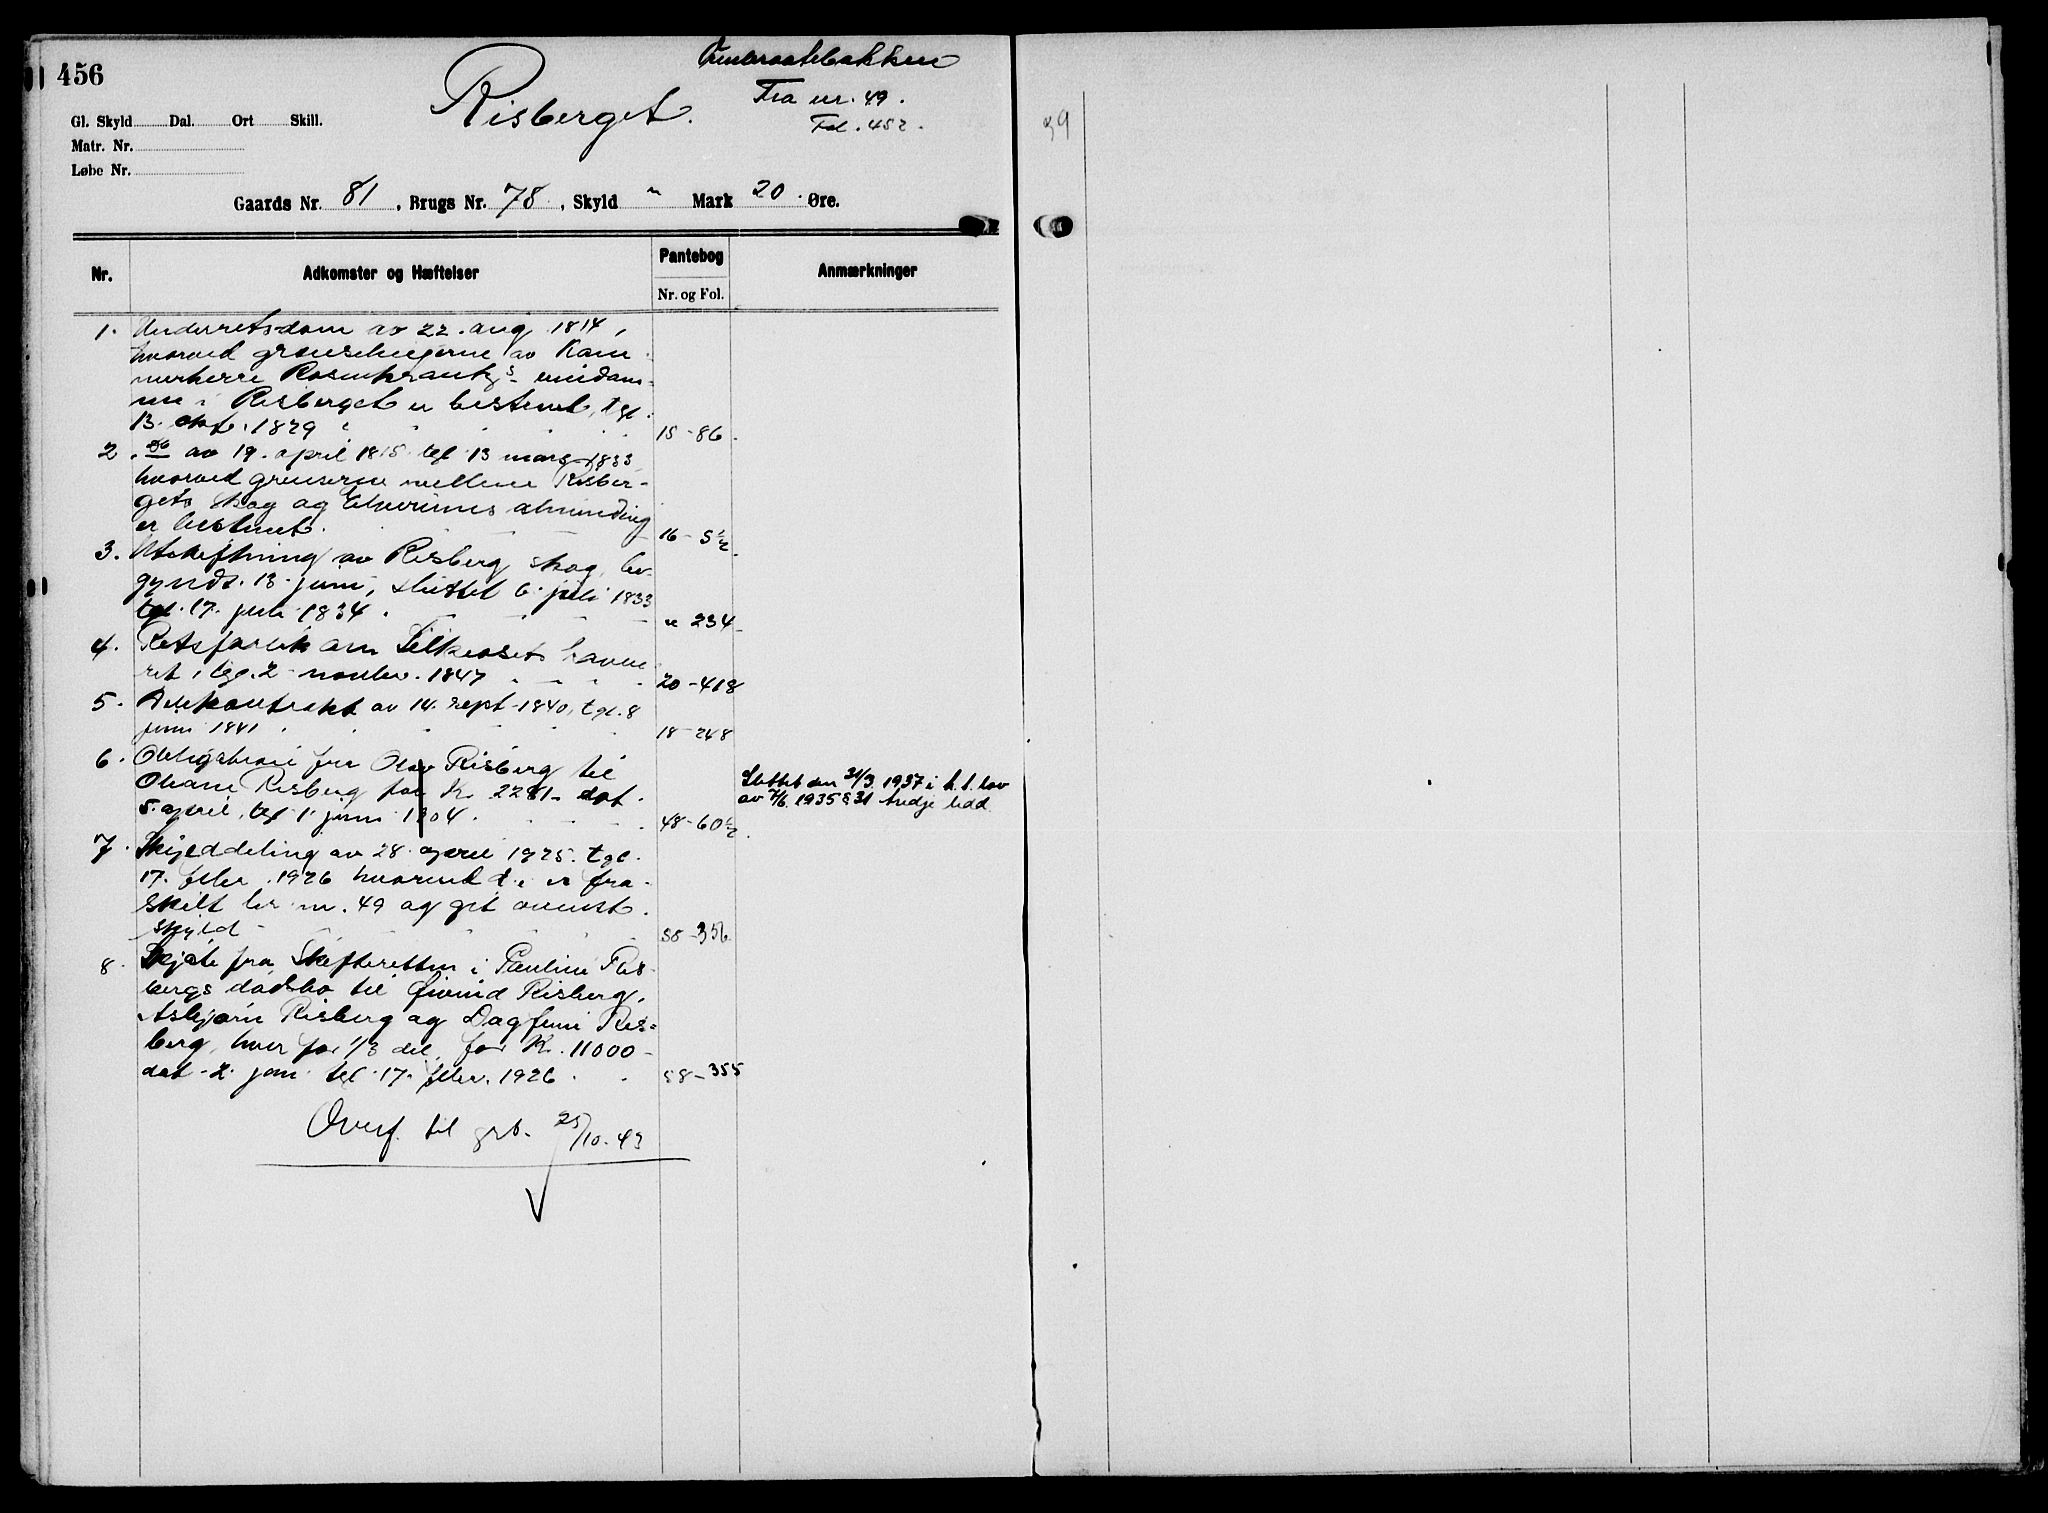 456
Risberget.
Fra nr. 49.
Fol. 452.
Gl. Skyld Dal. Ort Skill.
Matr. Nr.
Løbe Nr.
Gaards Nr. 81, Brugs Nr. 78, Skyld " Mark 20 Øre.
Nr. Adkomster og Hæftelser Pantebog Anmærkninger
Nr. og Fol.
1. Underretsdom av 22. aug. 1814,
hvorved grænselinjerne av Kam-
merherre Rosenkrantz's eiendom-
me i Risberget er bestemt, tgl.
13. okt. 1829 15-86.
2. do av 19. april 1815 tgl 13 mars 1833
hvorved grenserne mellem Risber-
gets skog og Elverums alminding
er bestemt. 16-5½
3. Utskiftning av Risberg skog, be-
gyndt 13. juni, sluttet 6. juli 1833
tgl. 17. juli 1834. " 234
4. Retsforlik om
ret, tgl. 2 novbr. 1847 20-418
5. Delekontrakt av 14. sept. 1840, tgl. 8
juni 1841 18-248
6. Obligation fra Olav Risberg til
Oliane Risberg for Kr. 2281- dat.
5. april, tgl 1. juni 1904. 48-60½
Slettet den 31/3 1937 i h.t. lov
av 7/6 1935 § 31 tredje ledd.
7. Skylddeling av 28. april 1925. tgl.
17. febr. 1926 hvorved d.e. er fra-
skilt br. nr. 49 og git ovenst.
skyld 58-356
8. Skjøte fra Skifteretten i Pauline Ris-
bergs dødsbo til Øivind Risberg,
Asbjørn Risberg og Dagfinn Ris-
berg, hver for 1/3 del, for Kr. 11000-
dat. 2. jan. tgl. 17. febr. 1926. 58-355
Overf. til grb. 25/10-43
39